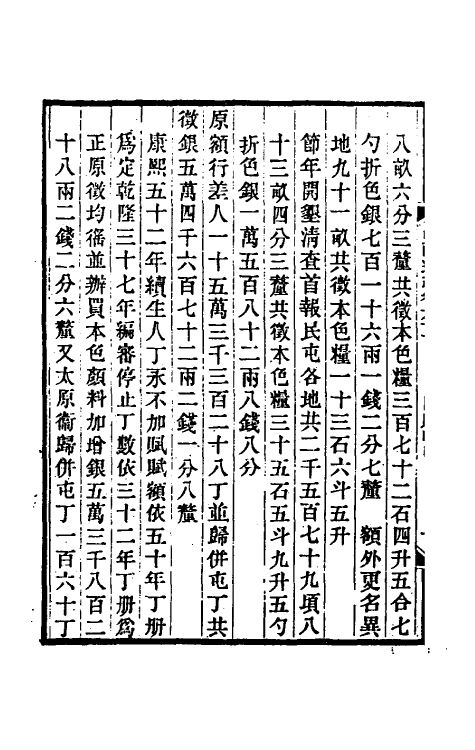 八畝六分三釐共徵本色糧三百七十二石四升五合七
勺折色銀七百一十六兩一錢二分七釐　額外更名異
地九十一畝共徵本色糧一十三石六斗五升
節年開墾清查首報民屯各地共二千五百七十九項八
十三畝四分三釐共徵本色糧三十五石五斗九升五勺
折色銀一萬五百八十二兩八錢八分
原額行差人一十五萬三千三百二十八丁並歸併屯丁共
徵銀五萬四千六百七十二兩二錢一分八釐
康熙五十二年續生人丁永不加賦賦額依五十年丁册
爲定乾隆三十七年編審停止丁數依三十二年丁册爲
正原徵均徭並辦買本色顏料加增銀五萬三千八百二
十八兩二錢二分六釐又太原衞歸併屯丁一百六十丁